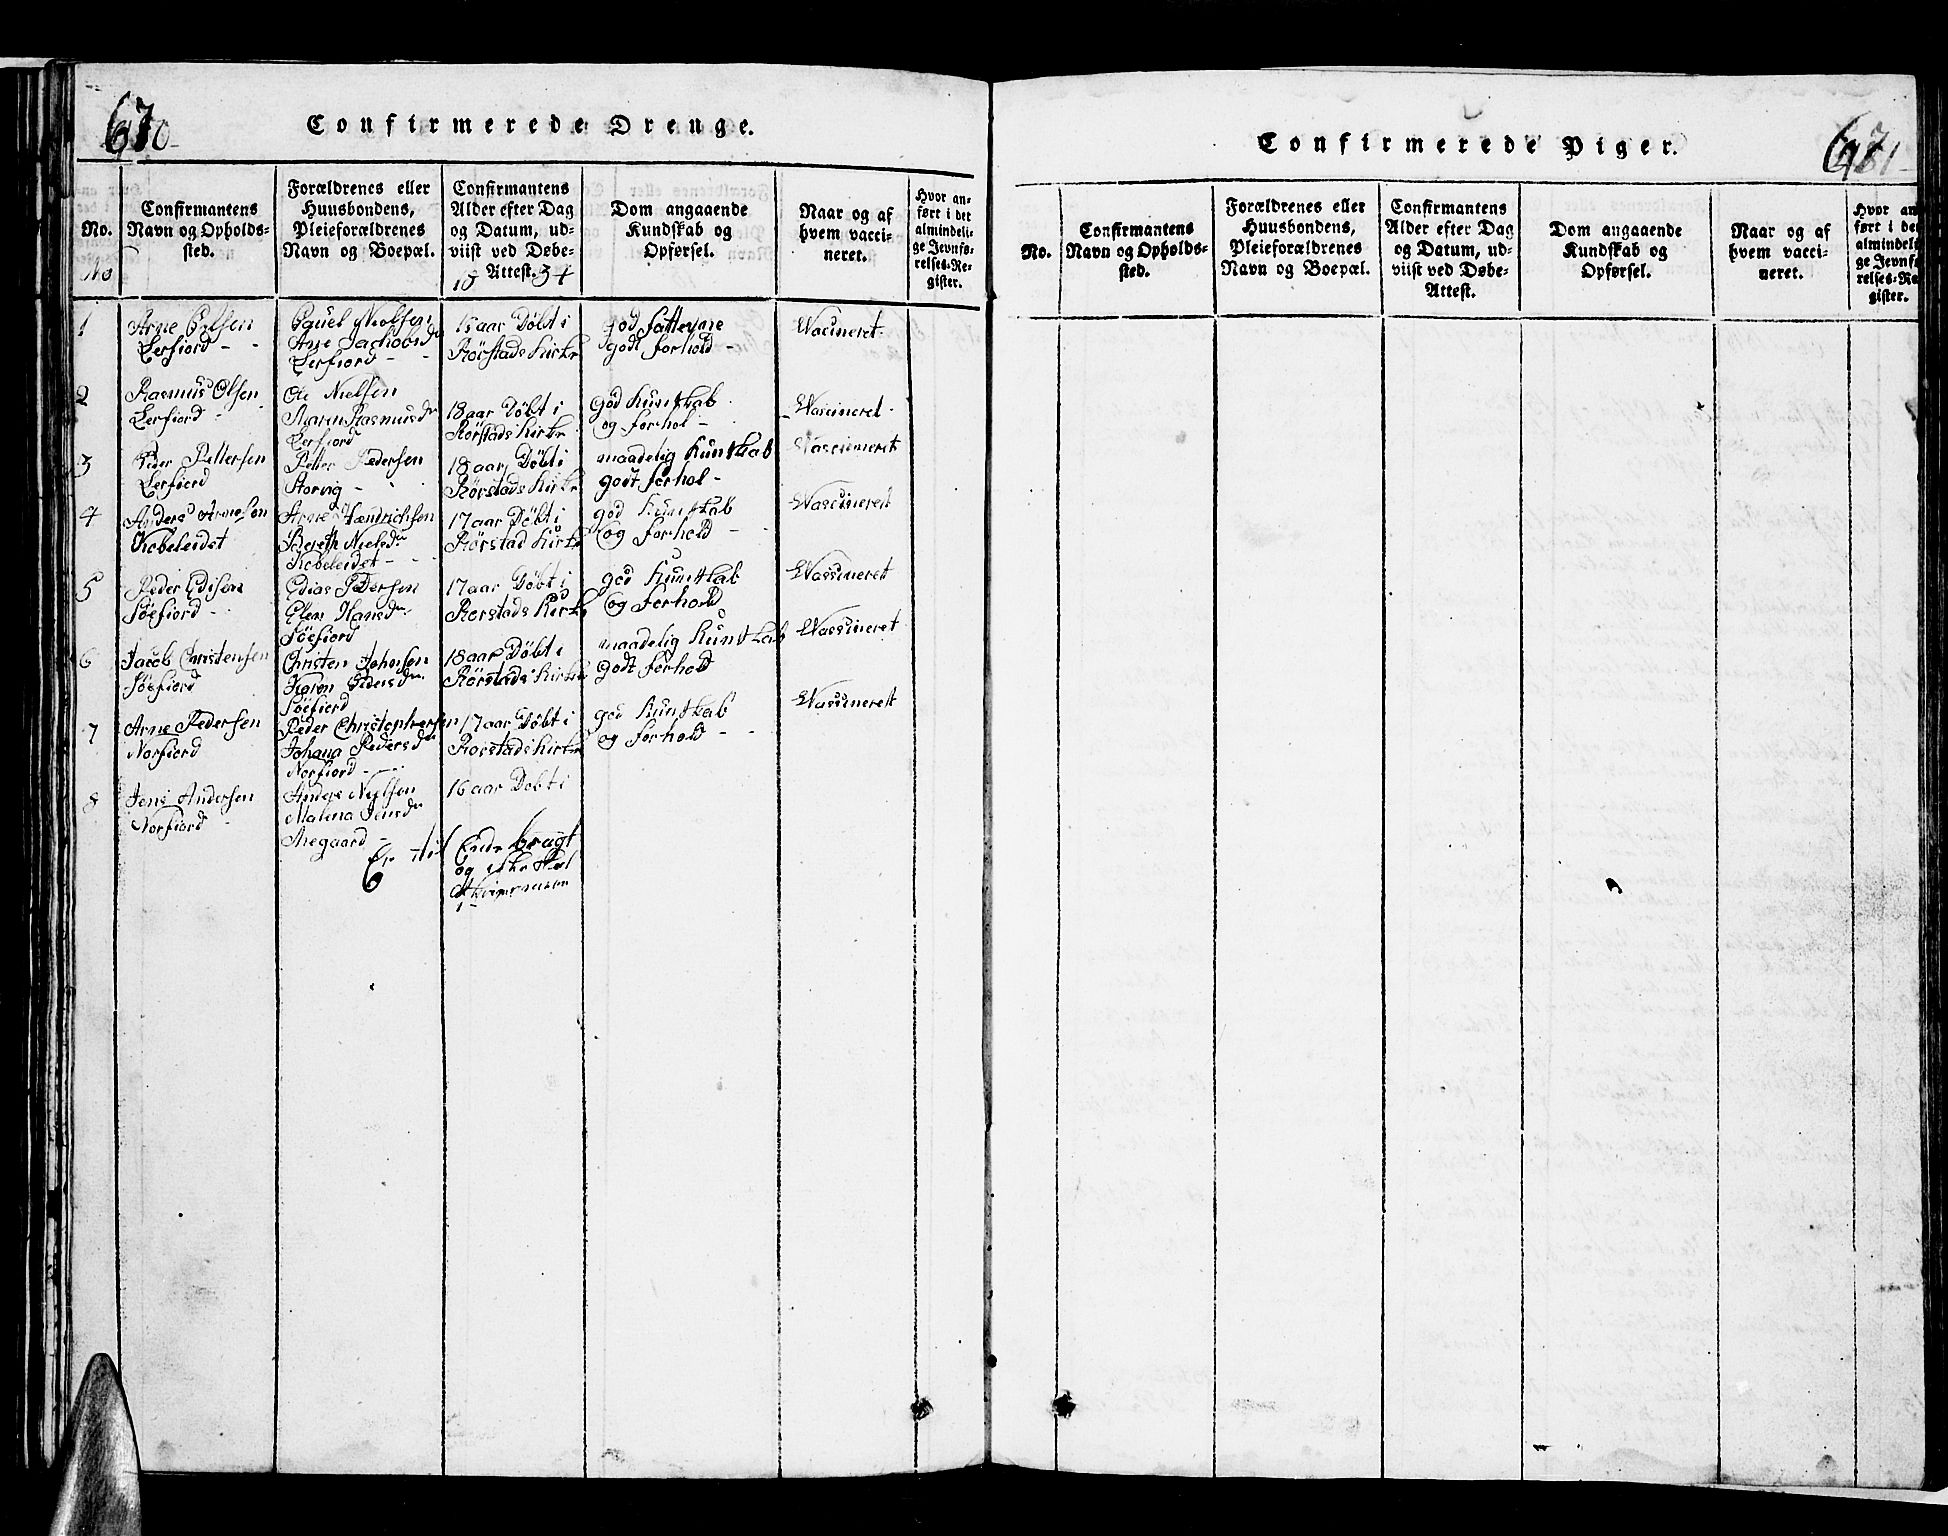 670
Confirmerede Drenge.
No.
Confirmantens
Navn og Opholds-
sted.
Forældrenes eller
Huusbondens,
Pleieforældrenes
Navn og Boepæl.
Confirmantens
Alder efter Dag
og Datum, ud-
viist ved Døbe-
Attest.
Dom angaaende
Kundskab og
Opførsel.
Naar og af
hvem vacci-
neret.
Hvor an-
ført i det
almindeli-
ge Jevnfø-
relses-Re-
gister.
No
18 34
1
Arne
Lerfiord
Arne
Lerfiord
15 aar Döbt i
Rörstads Kirke
god fattevne
godt forhold
Wacineret
2
Rasmus Olsen
Lerfiord
Ole Nielsen
Maren Rasmusdr
Lerfiord
18 aar Döbt i
Rörstads Kirke
god Kuntskab
og forhol
Wascineret
3
Peder Pettersen
Lerfiord
Petter Pedersen
Storvig
18 aar Döbt i
Rörstads Kirke
maadelig Kuntskab
godt forhol
Wascieneret
4
Anders Arnesen
Kobeleidet
Arne Hendrichsen
Bereth Nielsdr
Kobeleidet
17 aar Döbt i
Rörstad Kirke
god Kuntskab
og forhold
Wascineret
5
Peder Edisen
Söefiord
Edias Pedersen
Elen Hansdr
Söefiord
17 aar Döbt i
Rorstads Kirke
god Kuntskab
og forhold
Wassineret
6
Jacob Christensen
Söefiord
Christen Johansen
Karen Pedersdr
Söefiord
18 aar Döbt i
Rörstads Kirke
maadelig Kuntskab
godt forhold
Wassineret
7
Arne Pedersen
Norfiord
Peder Christophersen
Johana Pedersdr
Norfiord
17 aar Döbt i
Rorstads Kirke
god Kuntskab
og forhold
Wassineret
8
Jens Andersen
Norfiord
Anders Nielsen
Malena Jensdr
16 aar Dobt i
Er til Ende bragt
og
671
Confirmerede Piger.
No.
Confirmantens
Navn og Opholds-
sted.
Forældrenes eller
Huusbondens,
Pleieforældrenes
Navn og Boepæl.
Confirmantens
Alder efter Dag
og Datum, ud-
viist ved Døbe-
Attest.
Dom angaaende
Kundskab og
Opførsel.
Naar og af
hvem vacci-
neret.
Hvor an-
ført i det
almindeli-
ge Jevnfø-
relses-Re-
gister.